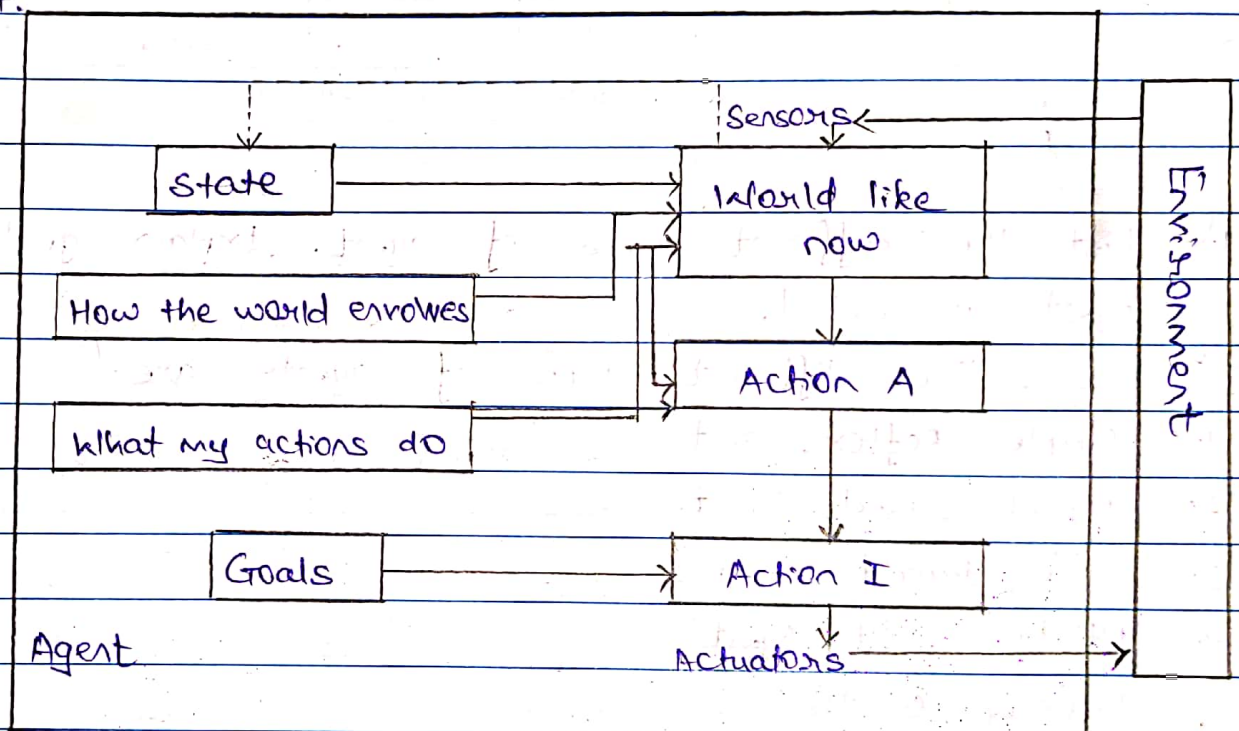 Sensors
State
World like
now
How the world envowes
Action A
What my actions do
Goals
Action I
Agent
Actuators
Environment